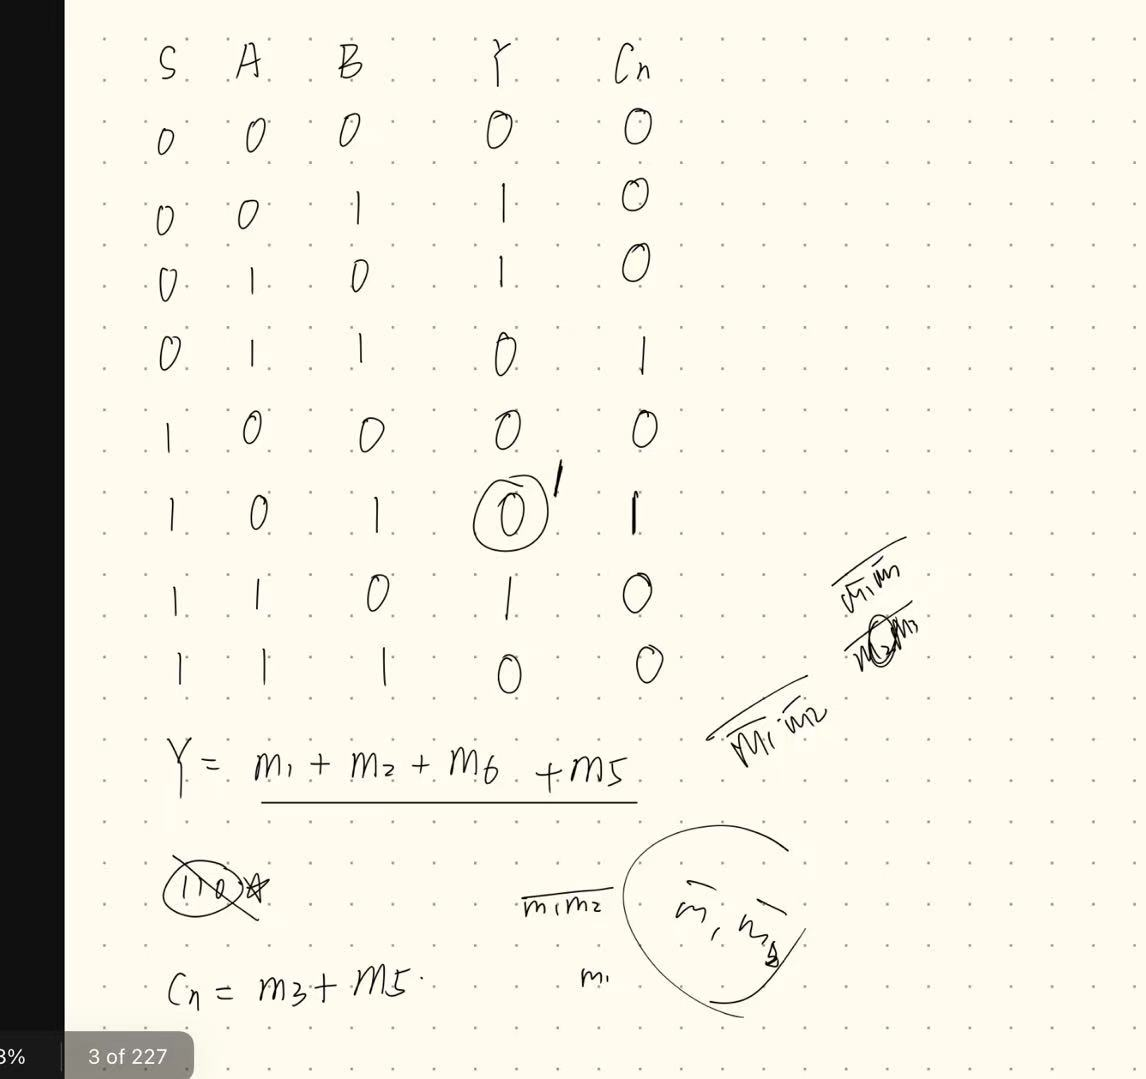 S A B Y Cn
0 0 0 0 0
0 0 1 1 0
0 1 0 1 0
0 1 1 0 1
1 0 0 0 0
1 0 1 0 1 1
1 1 0 1 0
1 1 1 0 0
m̅₁m̅
m₂m₃
m̅₁·m̅₂
Y = m₁ + m₂ + m₆ + m₅
110
m₁m₂
m̅₁ m̅₃
Cn = m₃ + m₅
m₁
3% 3 of 227